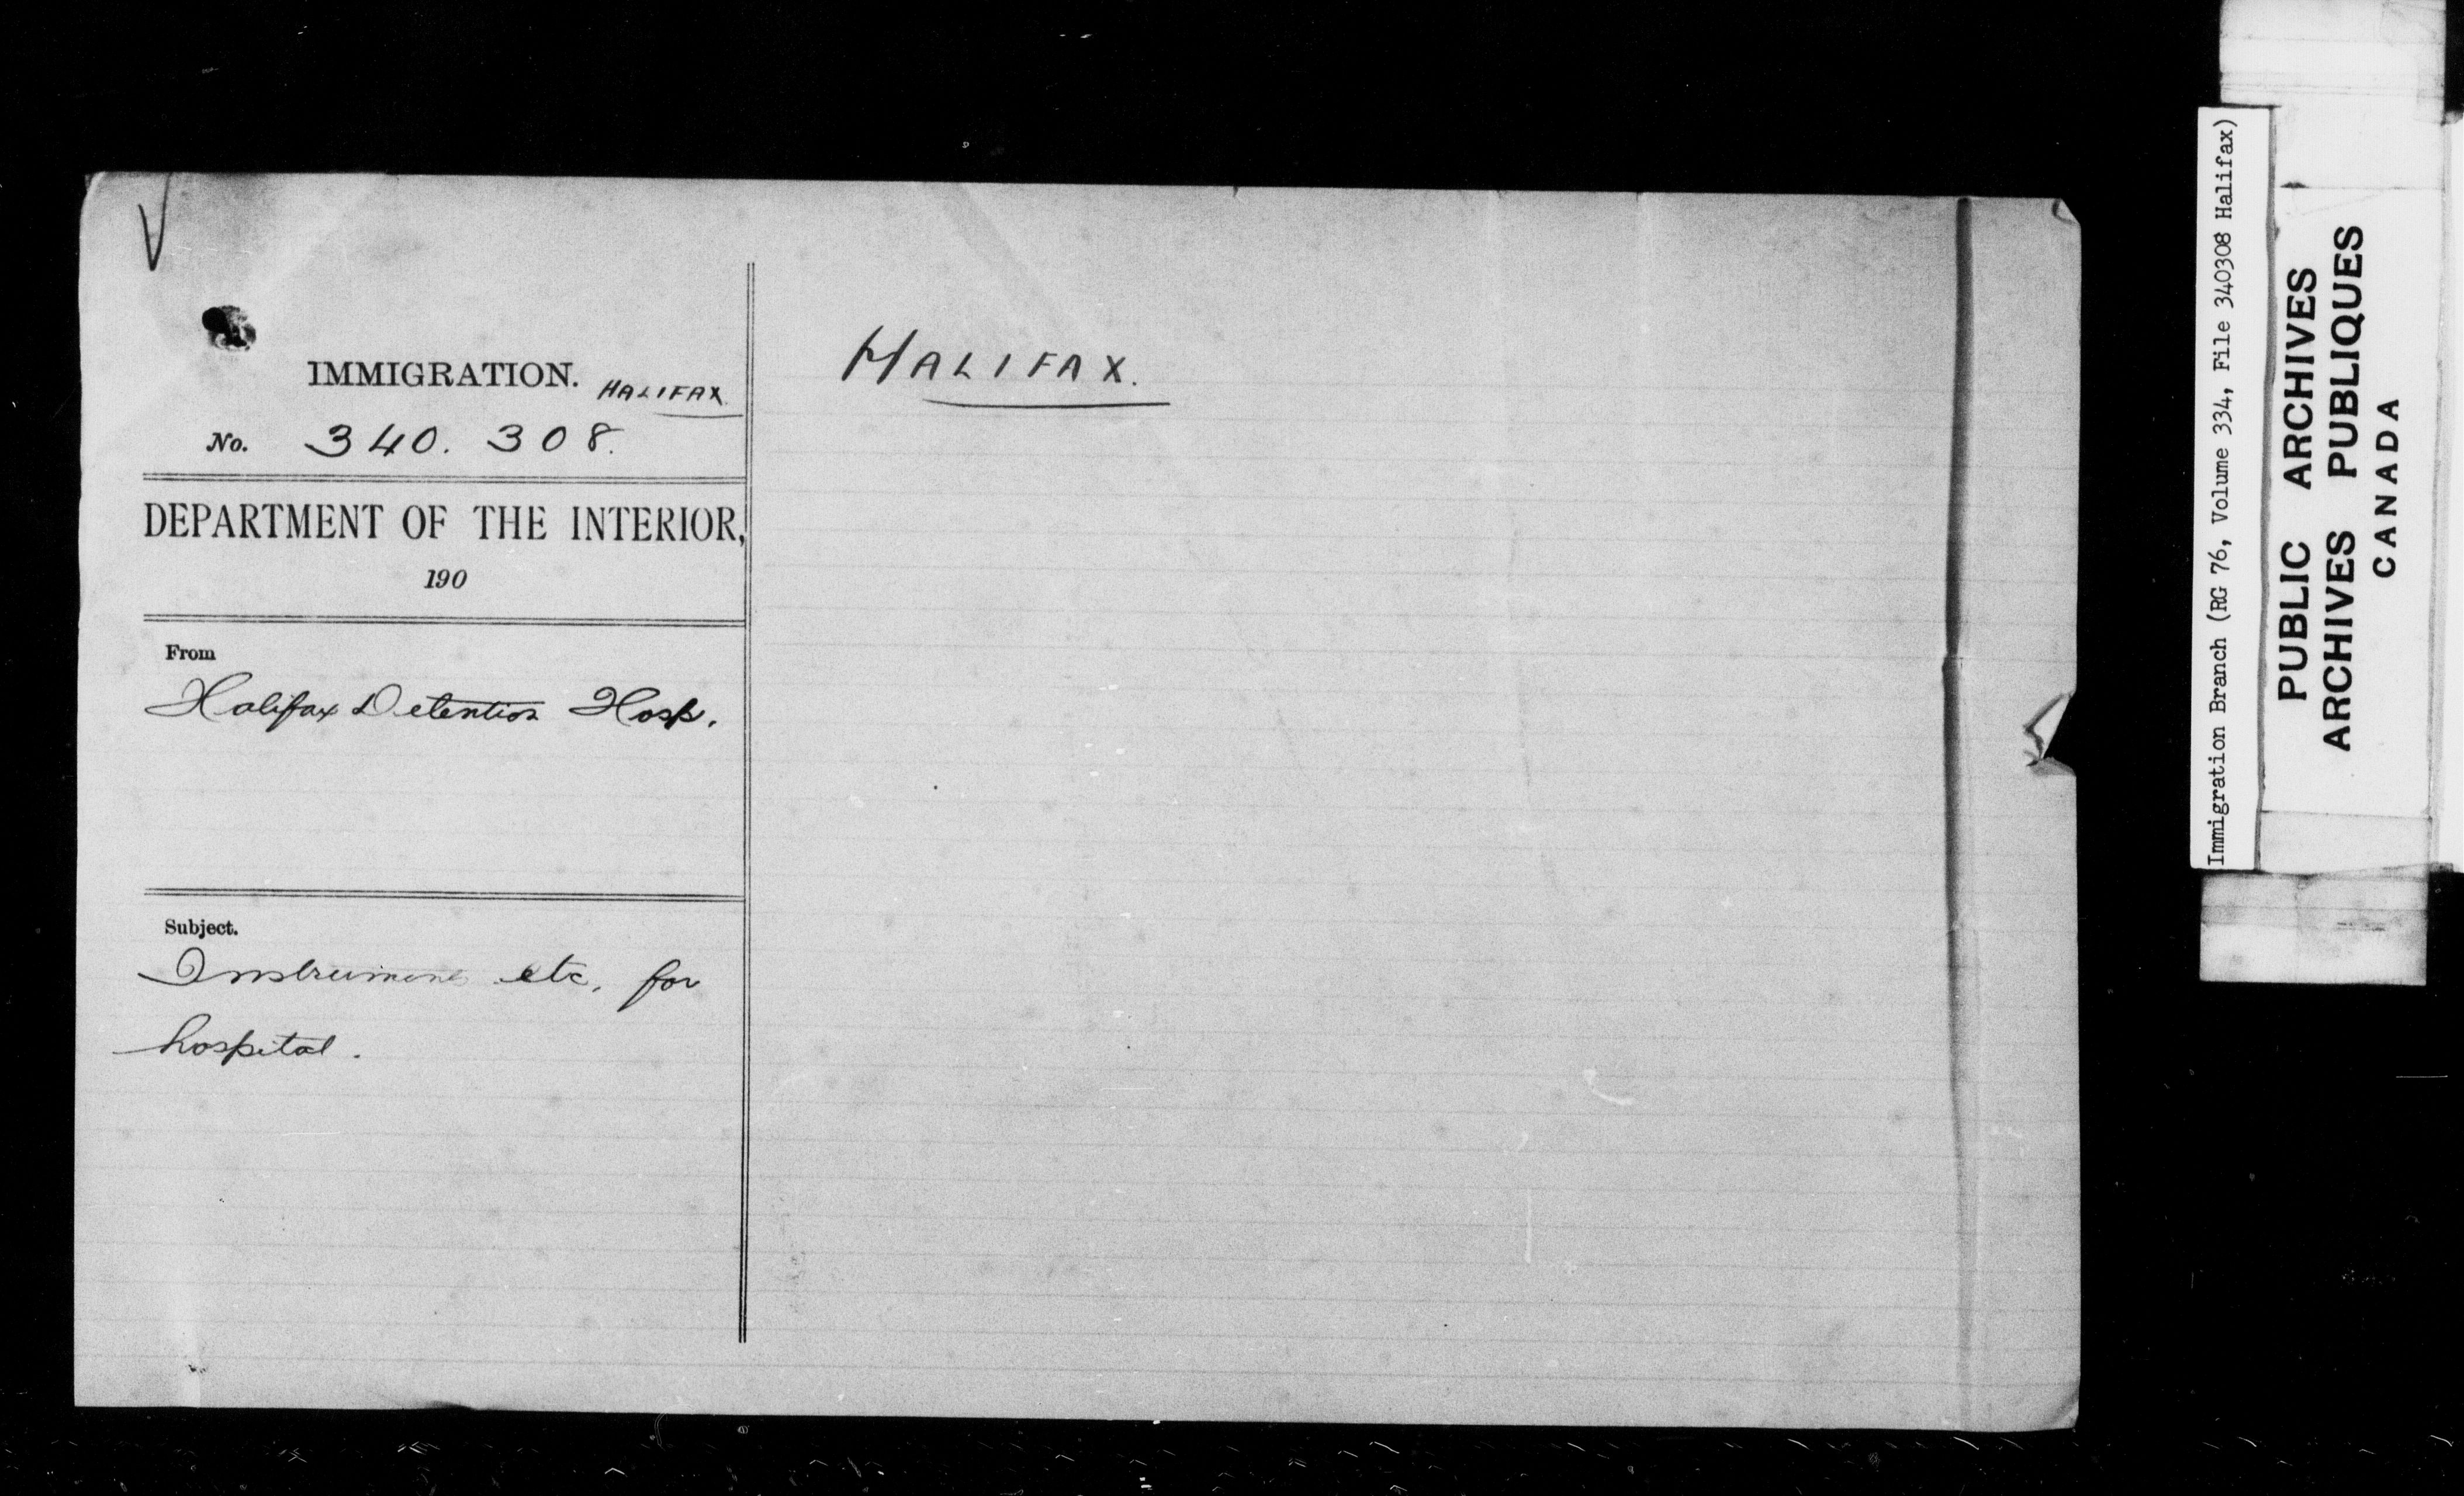 IMMIGRATION. HALIFAX
No. 340.308.
DEPARTMENT OF THE INTERIOR,
190
From
Halifax Detention Hosp.
Subject.
Instruments etc. for
hospital.
HALIFAX.
Immigration Branch (RG 76, Volume 334, File 340308 Halifax)
PUBLIC ARCHIVES
ARCHIVES PUBLIQUES
CANADA